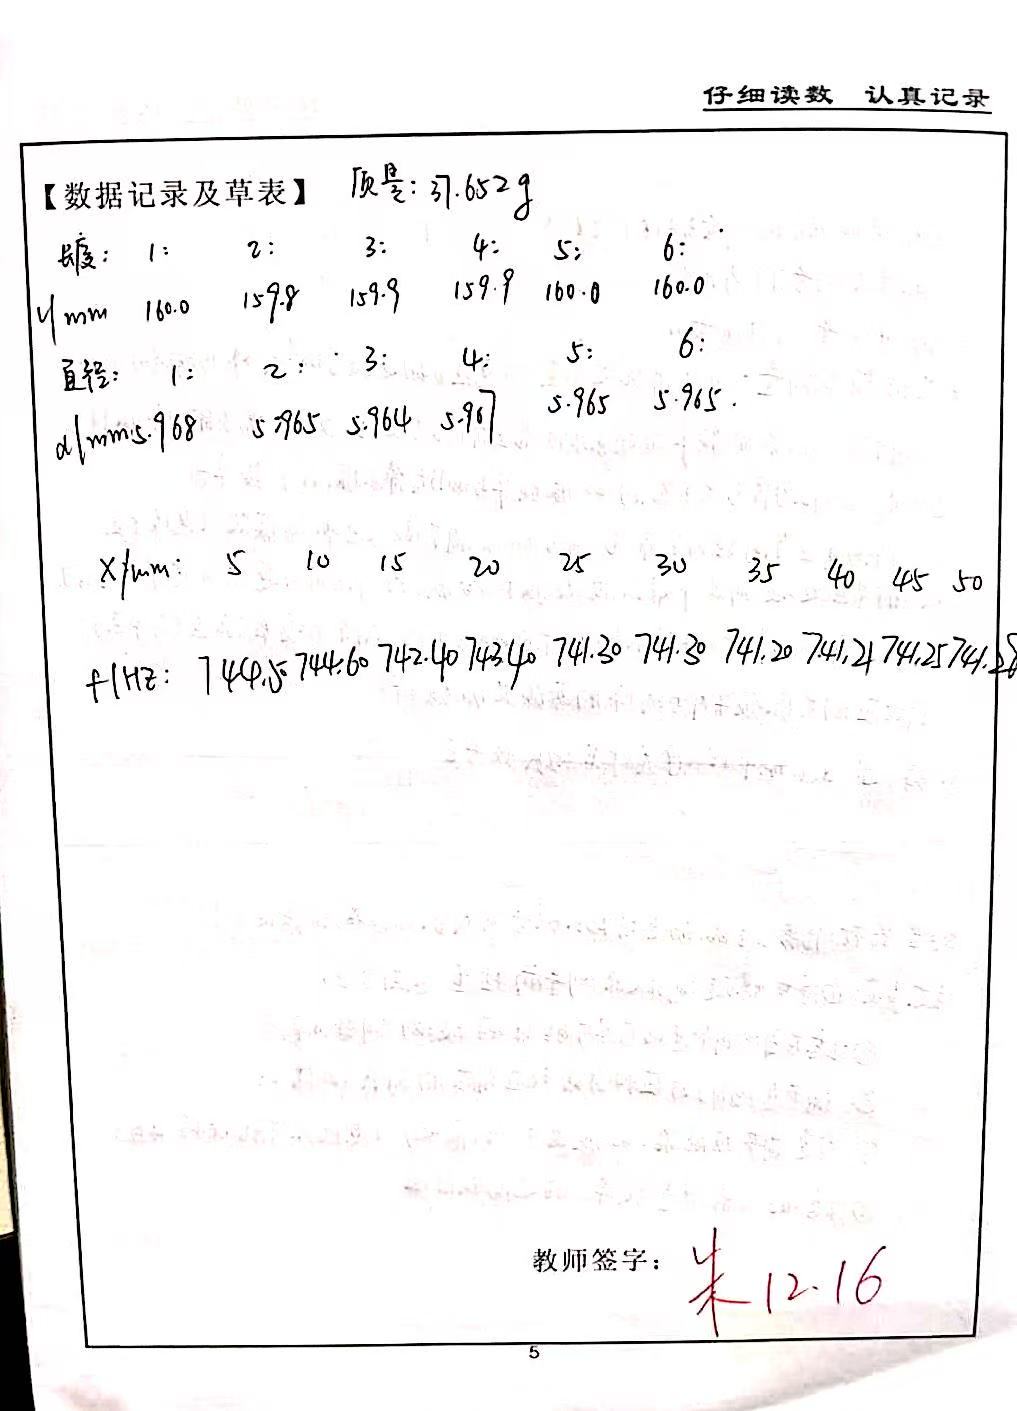 仔细读数 认真记录
【数据记录及草表】 质量: 37.652g
长度: 1: 2: 3: 4: 5: 6:
l/mm 160.0 159.8 159.9 159.9 160.0 160.0
直径: 1: 2: 3: 4: 5: 6:
d/mm: 5.968 5.965 5.964 5.967 5.965 5.965.
x/mm: 5 10 15 20 25 30 35 40 45 50
f/Hz: 744.5 744.60 742.40 743.40 741.30 741.30 741.20 741.21 741.25 741.28
教师签字: 朱 12.16
5